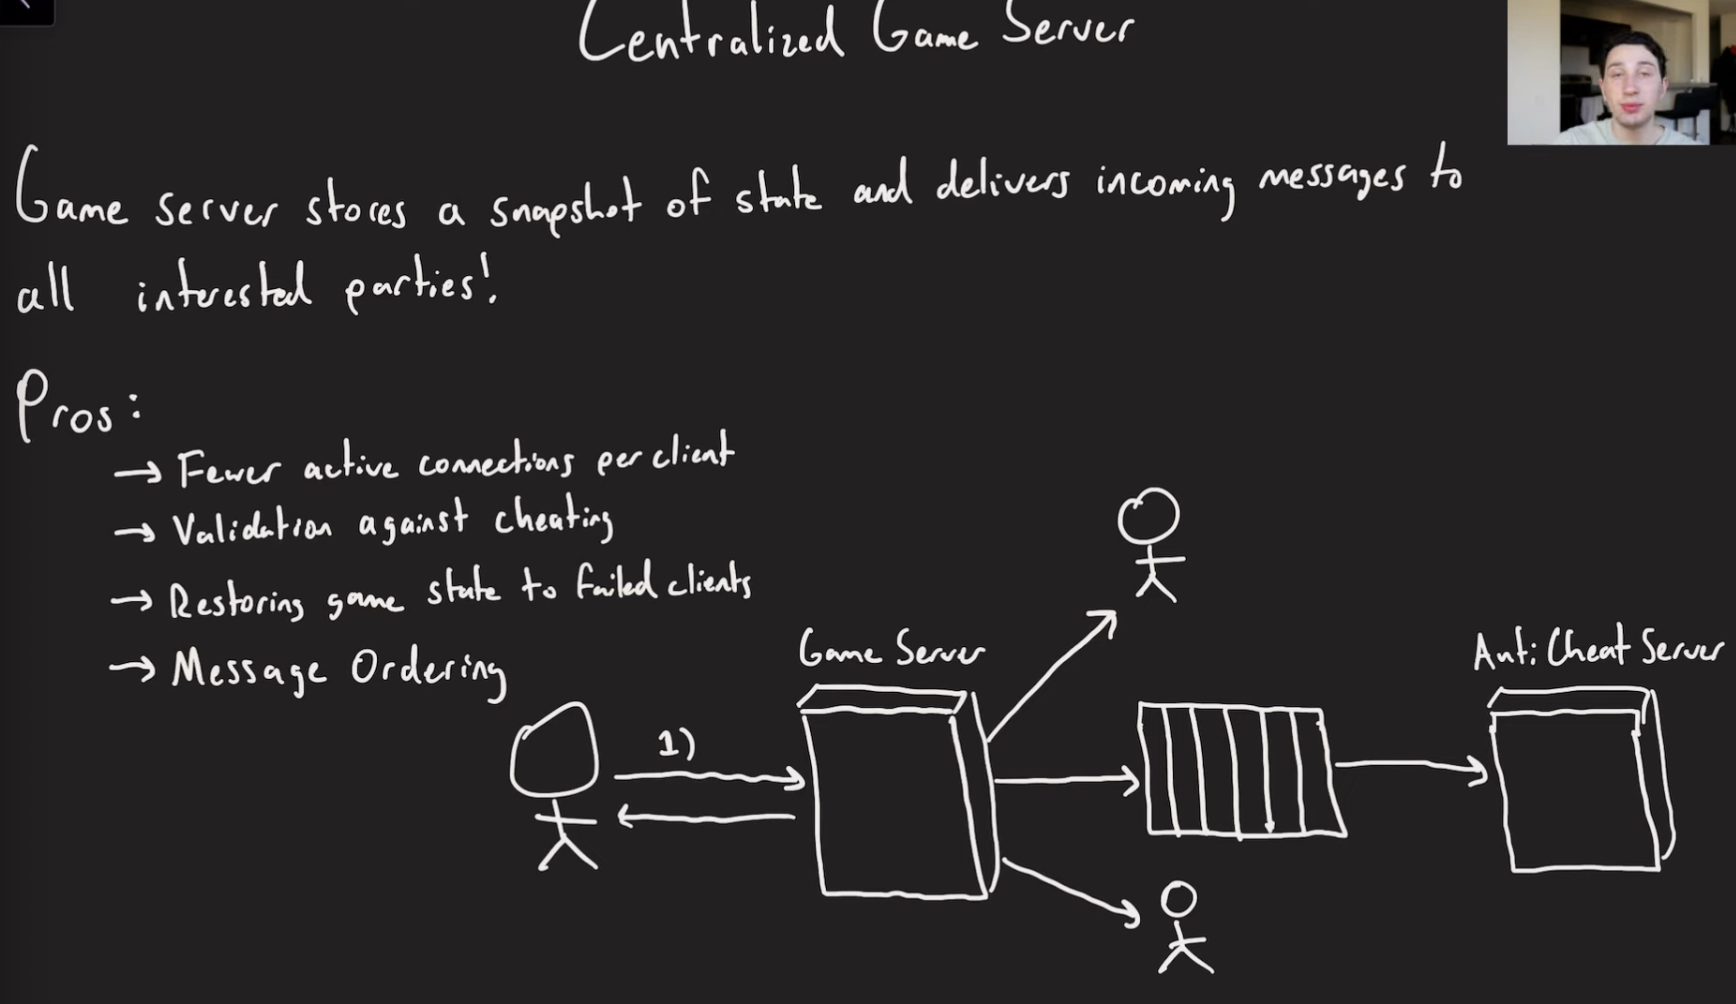 Centralized Game Server
Game server stores a snapshot of state and delivers incoming messages to
all interested parties!
Pros:
→ Fewer active connections per client
→ Validation against cheating
→ Restoring game state to failed clients
→ Message Ordering
Game Server
Anti Cheat Server
1)